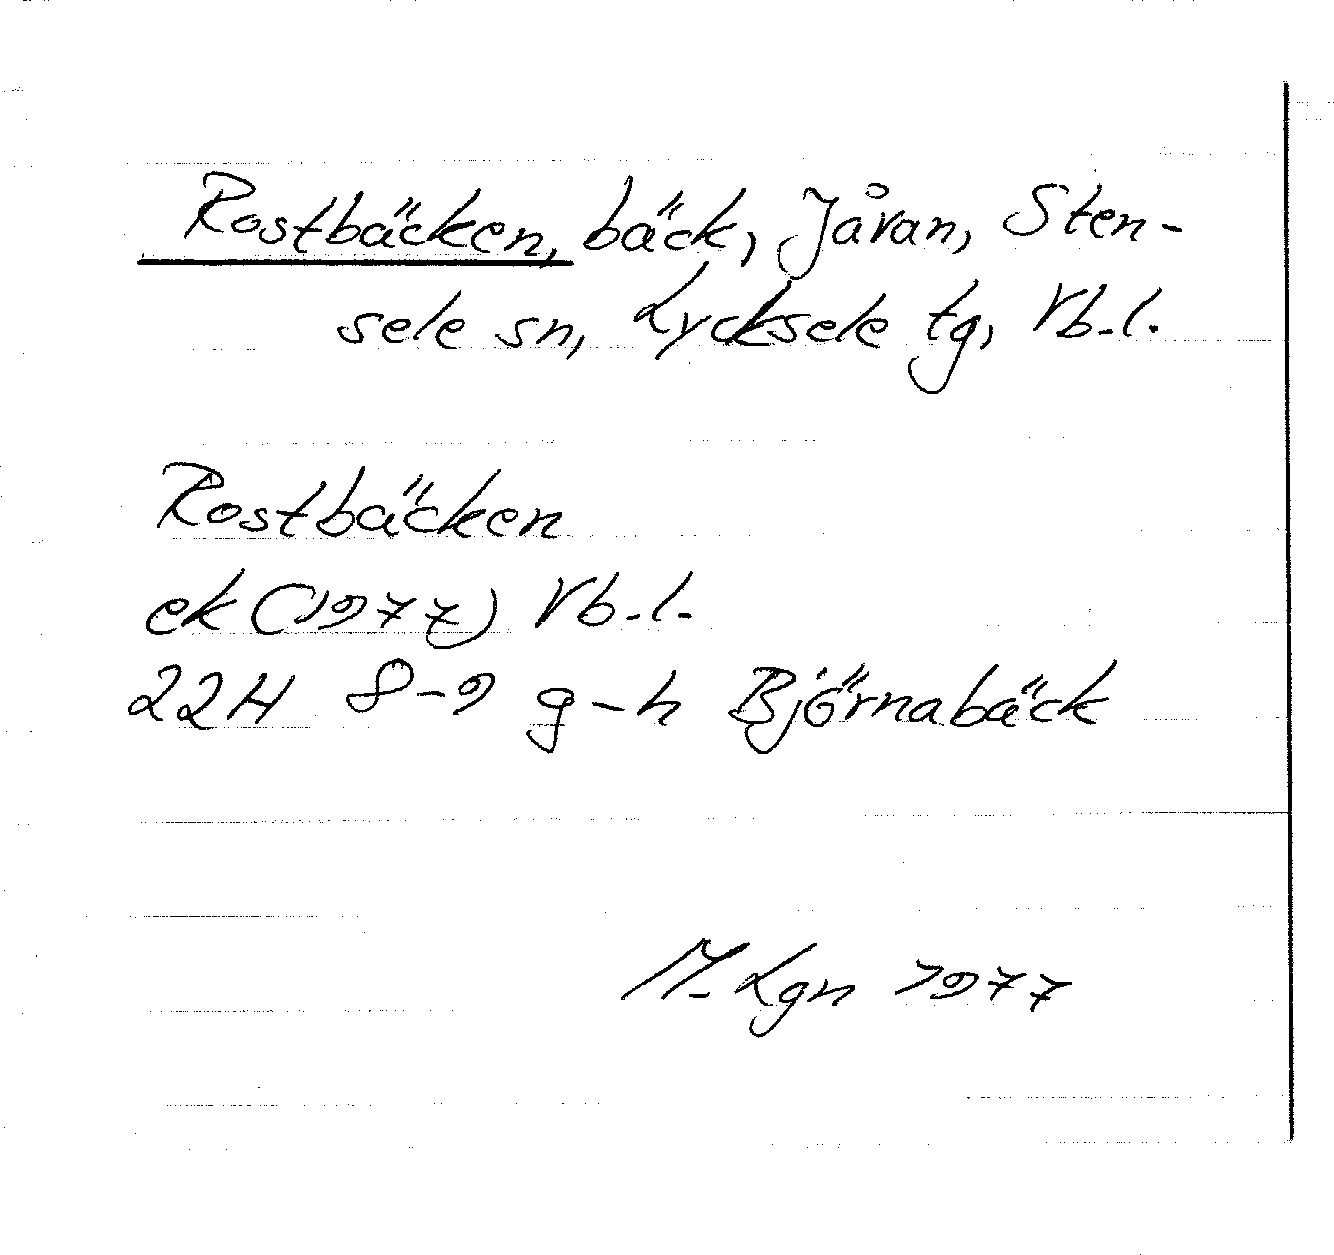 Rostbäcken, bäck, Jåvan, Sten-
sele sn, Lycksele tg, Vb.l.
Rostbäcken
ek (1977) Vb.l.
22H 8-9 g-h Björnabäck
M. Lgn 1977